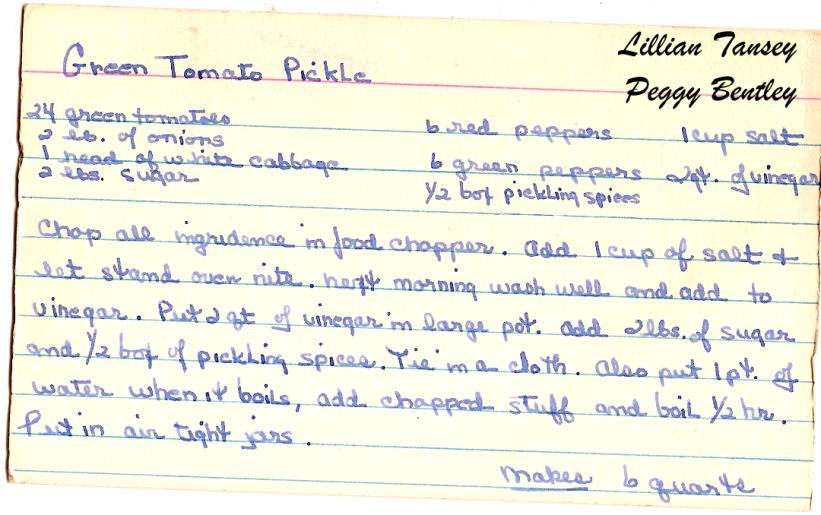 Lillian Tansey
Peggy Bentley
Green Tomato Pickle
24 green tomatoes
2 lb. of onions
1 head of white cabbage
2 lbs. sugar
6 red peppers
6 green peppers
1/2 box pickling spices
1 cup salt
2 qt. of vinegar
Chop all ingrudence in food chopper. add 1 cup of salt +
let stand over nite. next morning wash well and add to
vinegar. Put 2 qt of vinegar in large pot. add 2 lbs. of sugar
and 1/2 box of pickling spices. Tie in a cloth. Also put 1 pt. of
water when it boils, add chapped stuff and boil 1/2 hr.
Put in air tight jars.
makes 6 quarts